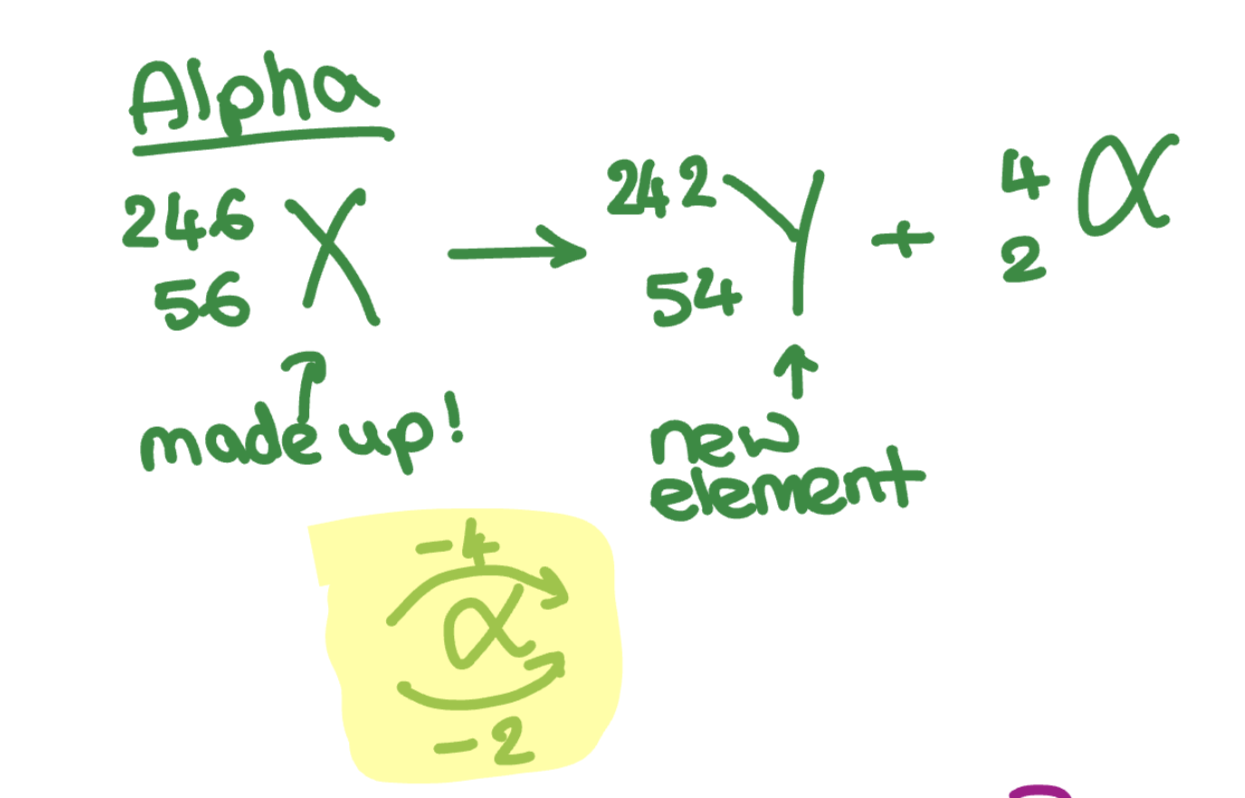 Alpha
246 56 X → 242 54 Y + 4 2 α
made up!
new
element
-4
α
-2